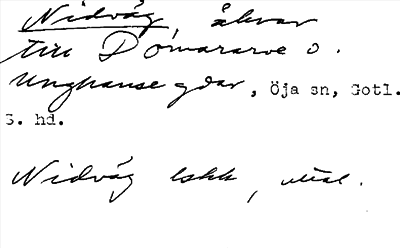 Nidväg, åkrar
till Domararve o.
Unghanse gdar, Öja sn, Gotl.
S. hd.
Nidväg lskk, utal.